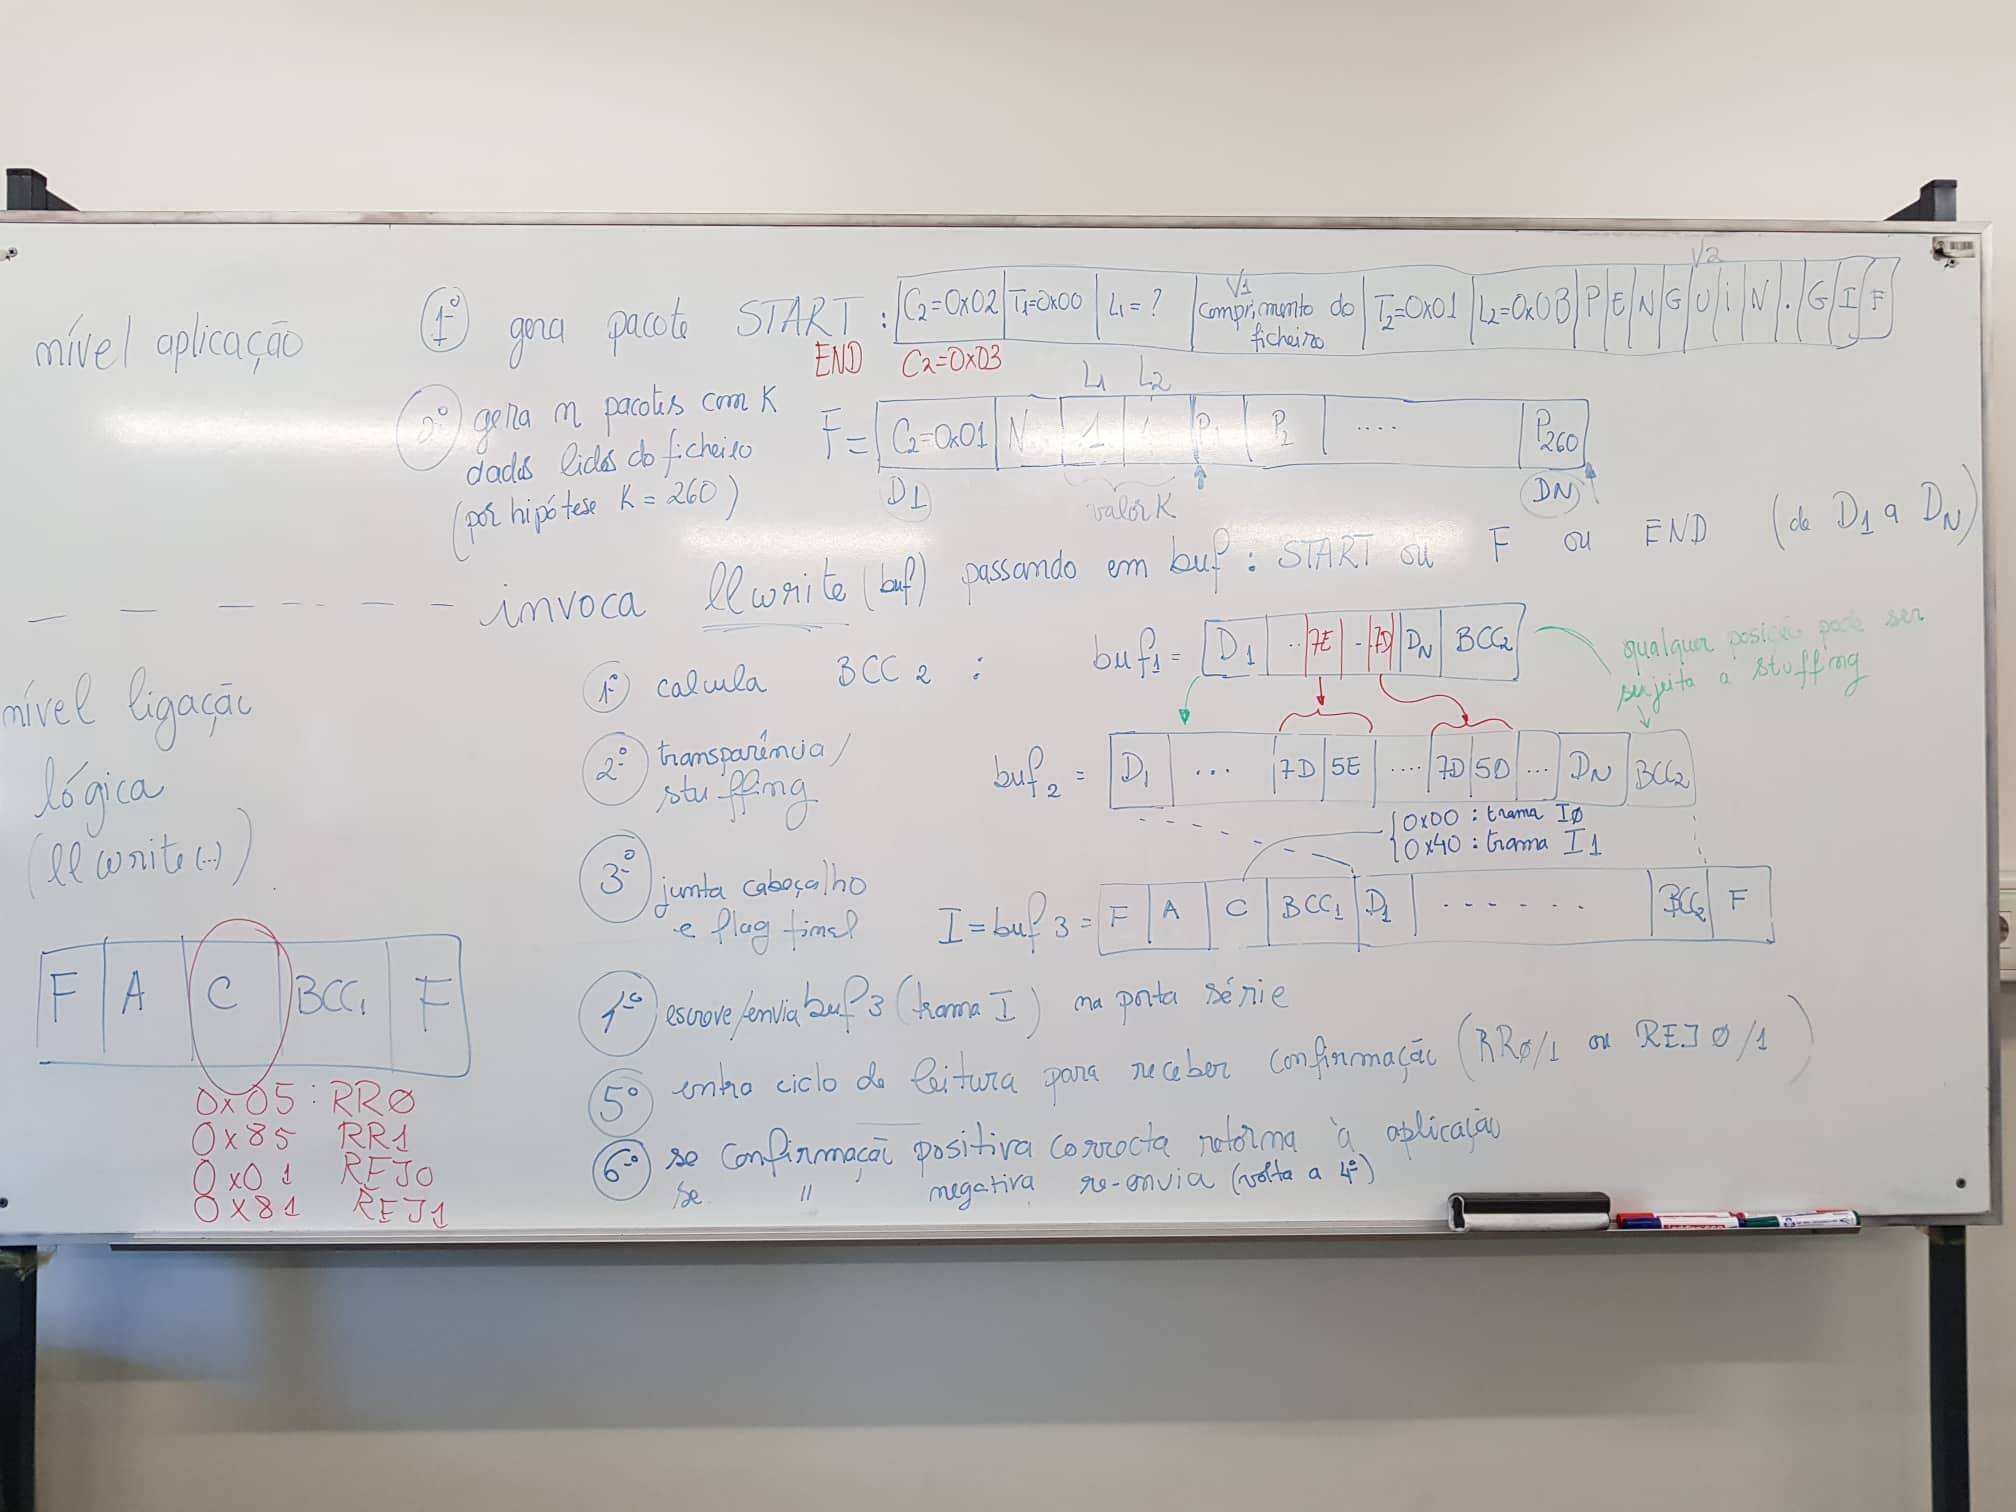 nível aplicação
1º gera pacote START : C2=0x02 T1=0x00 L1=? V1 comprimento do ficheiro T2=0x01 L2=0x0B V2 P E N G U i N . G I F
END C2=0x03
2º gera n pacotes com K
dados lidos do ficheiro
(por hipótese K = 260)
L1 L2
F = C2=0x01 N 1 P1 P2 .... P260
D1 valor K DN
invoca llwrite (buf) passando em buf : START ou F ou END (de D1 a DN)
nível ligação
lógica
(llwrite(...))
1º calcula BCC2 :
buf1 = D1 ... 7E - 7D DN BCC2
qualquer posição pode ser
sujeita a stuffing
2º transparência/
stuffing
buf2 = D1 ... 7D 5E .... 7D 5D ... DN BCC2
0x00 : trama IØ
0x40 : trama I1
3º junta cabeçalho
e flag final
I = buf3 = F A C BCC1 D1 ....... BCC2 F
4º escreve/envia buf3 (trama I) na porta série
5º entra ciclo de leitura para receber confirmação (RRØ/1 ou REJØ/1)
6º se confirmação positiva correcta retorna à aplicação
se " negativa re-envia (volta a 4º)
F A C BCC1 F
0x05 : RRØ
0x85 RR1
0x01 REJ0
0x81 REJ1